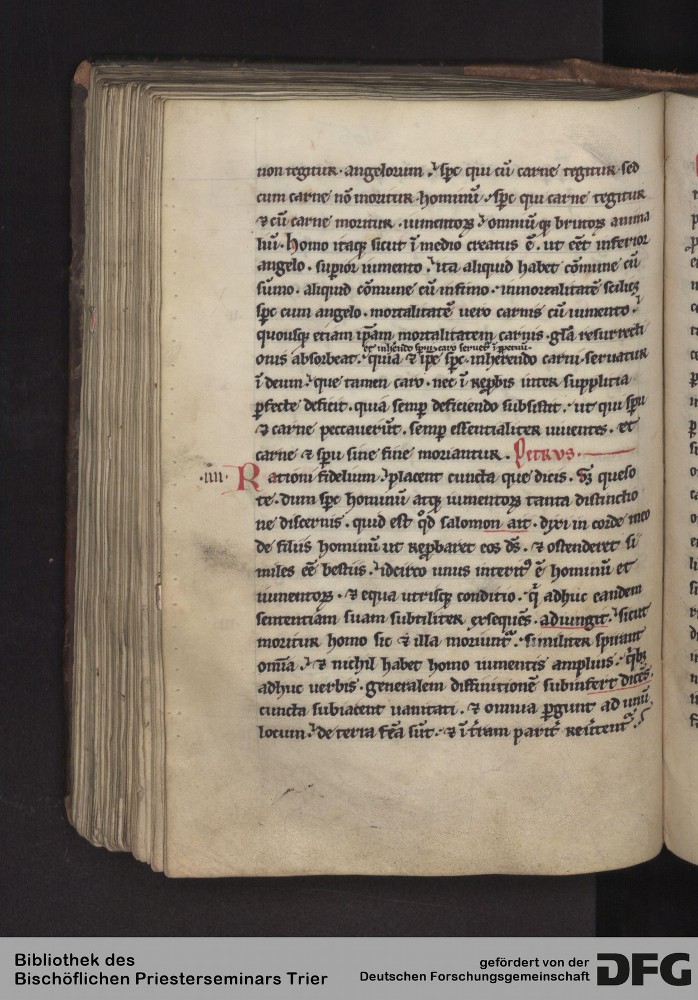 non tegitur · angelorum . spc qui cū carne tegitur · sed
cum carne nō moritur · hominū . spc qui carne tegitur
& cū carne moritur . iumentoꝝ . omniū q; brutoꝝ anima
liū . homo itaq; sicut ī medio creatus ē . ut eēt inferior
angelo . superior iumento . ita aliquid habet cōmune cū
sūmo . aliquid cōmune cū infimo . inmortalitatē scilicꝫ
spc cum angelo . mortalitatē uero carnis cū iumento .
quousq; etiam ipsam mortalitatem carnis . gla resurrecti
et inherendo spui caro seruetur
onis absorbeat . quia & ipe spc . inherendo carni . seruatur
ī deum . que tamen caro . nec ī ꝛeꝓbis inter supplicia
ꝑfecte deficit . quia semꝑ deficiendo subsistit . ut qui spu
& carne peccauerūt . semꝑ essentialiter uiuentes . et
carne & spu sine fine moriantur . Petrus .
·iiii· Rationi fidelium . placent cuncta que dicis . Sꝫ queso
te . dum spc hominū atq; iumentoꝝ tanta distinctio
ne discernis . quid est qd salomon ait . dixi in corde meo
de filiis hominū ut reꝓbaret eos ds̄ . & ostenderet si
miles eē bestiis . idcirco unus interitꝰ ē hominū et
iumentoꝝ . & equa utriusq; conditio . q̇ adhuc eandem
sententiam suam subtiliter exsequēs . adiungit . sicut
moritur homo sic & illa moriunt . similiter spirant
omīa . & nichil habet homo iumentis amplius . qbꝫ
adhuc uerbis . generalem diffinitionē subinfert dicēs .
cuncta subiacent uanitati . & omnia ꝑgunt ad unū
locum . de terra fca sūt . & ī tram parit reuertent .
Bibliothek des
Bischöflichen Priesterseminars Trier
gefördert von der
Deutschen Forschungsgemeinschaft
DFG